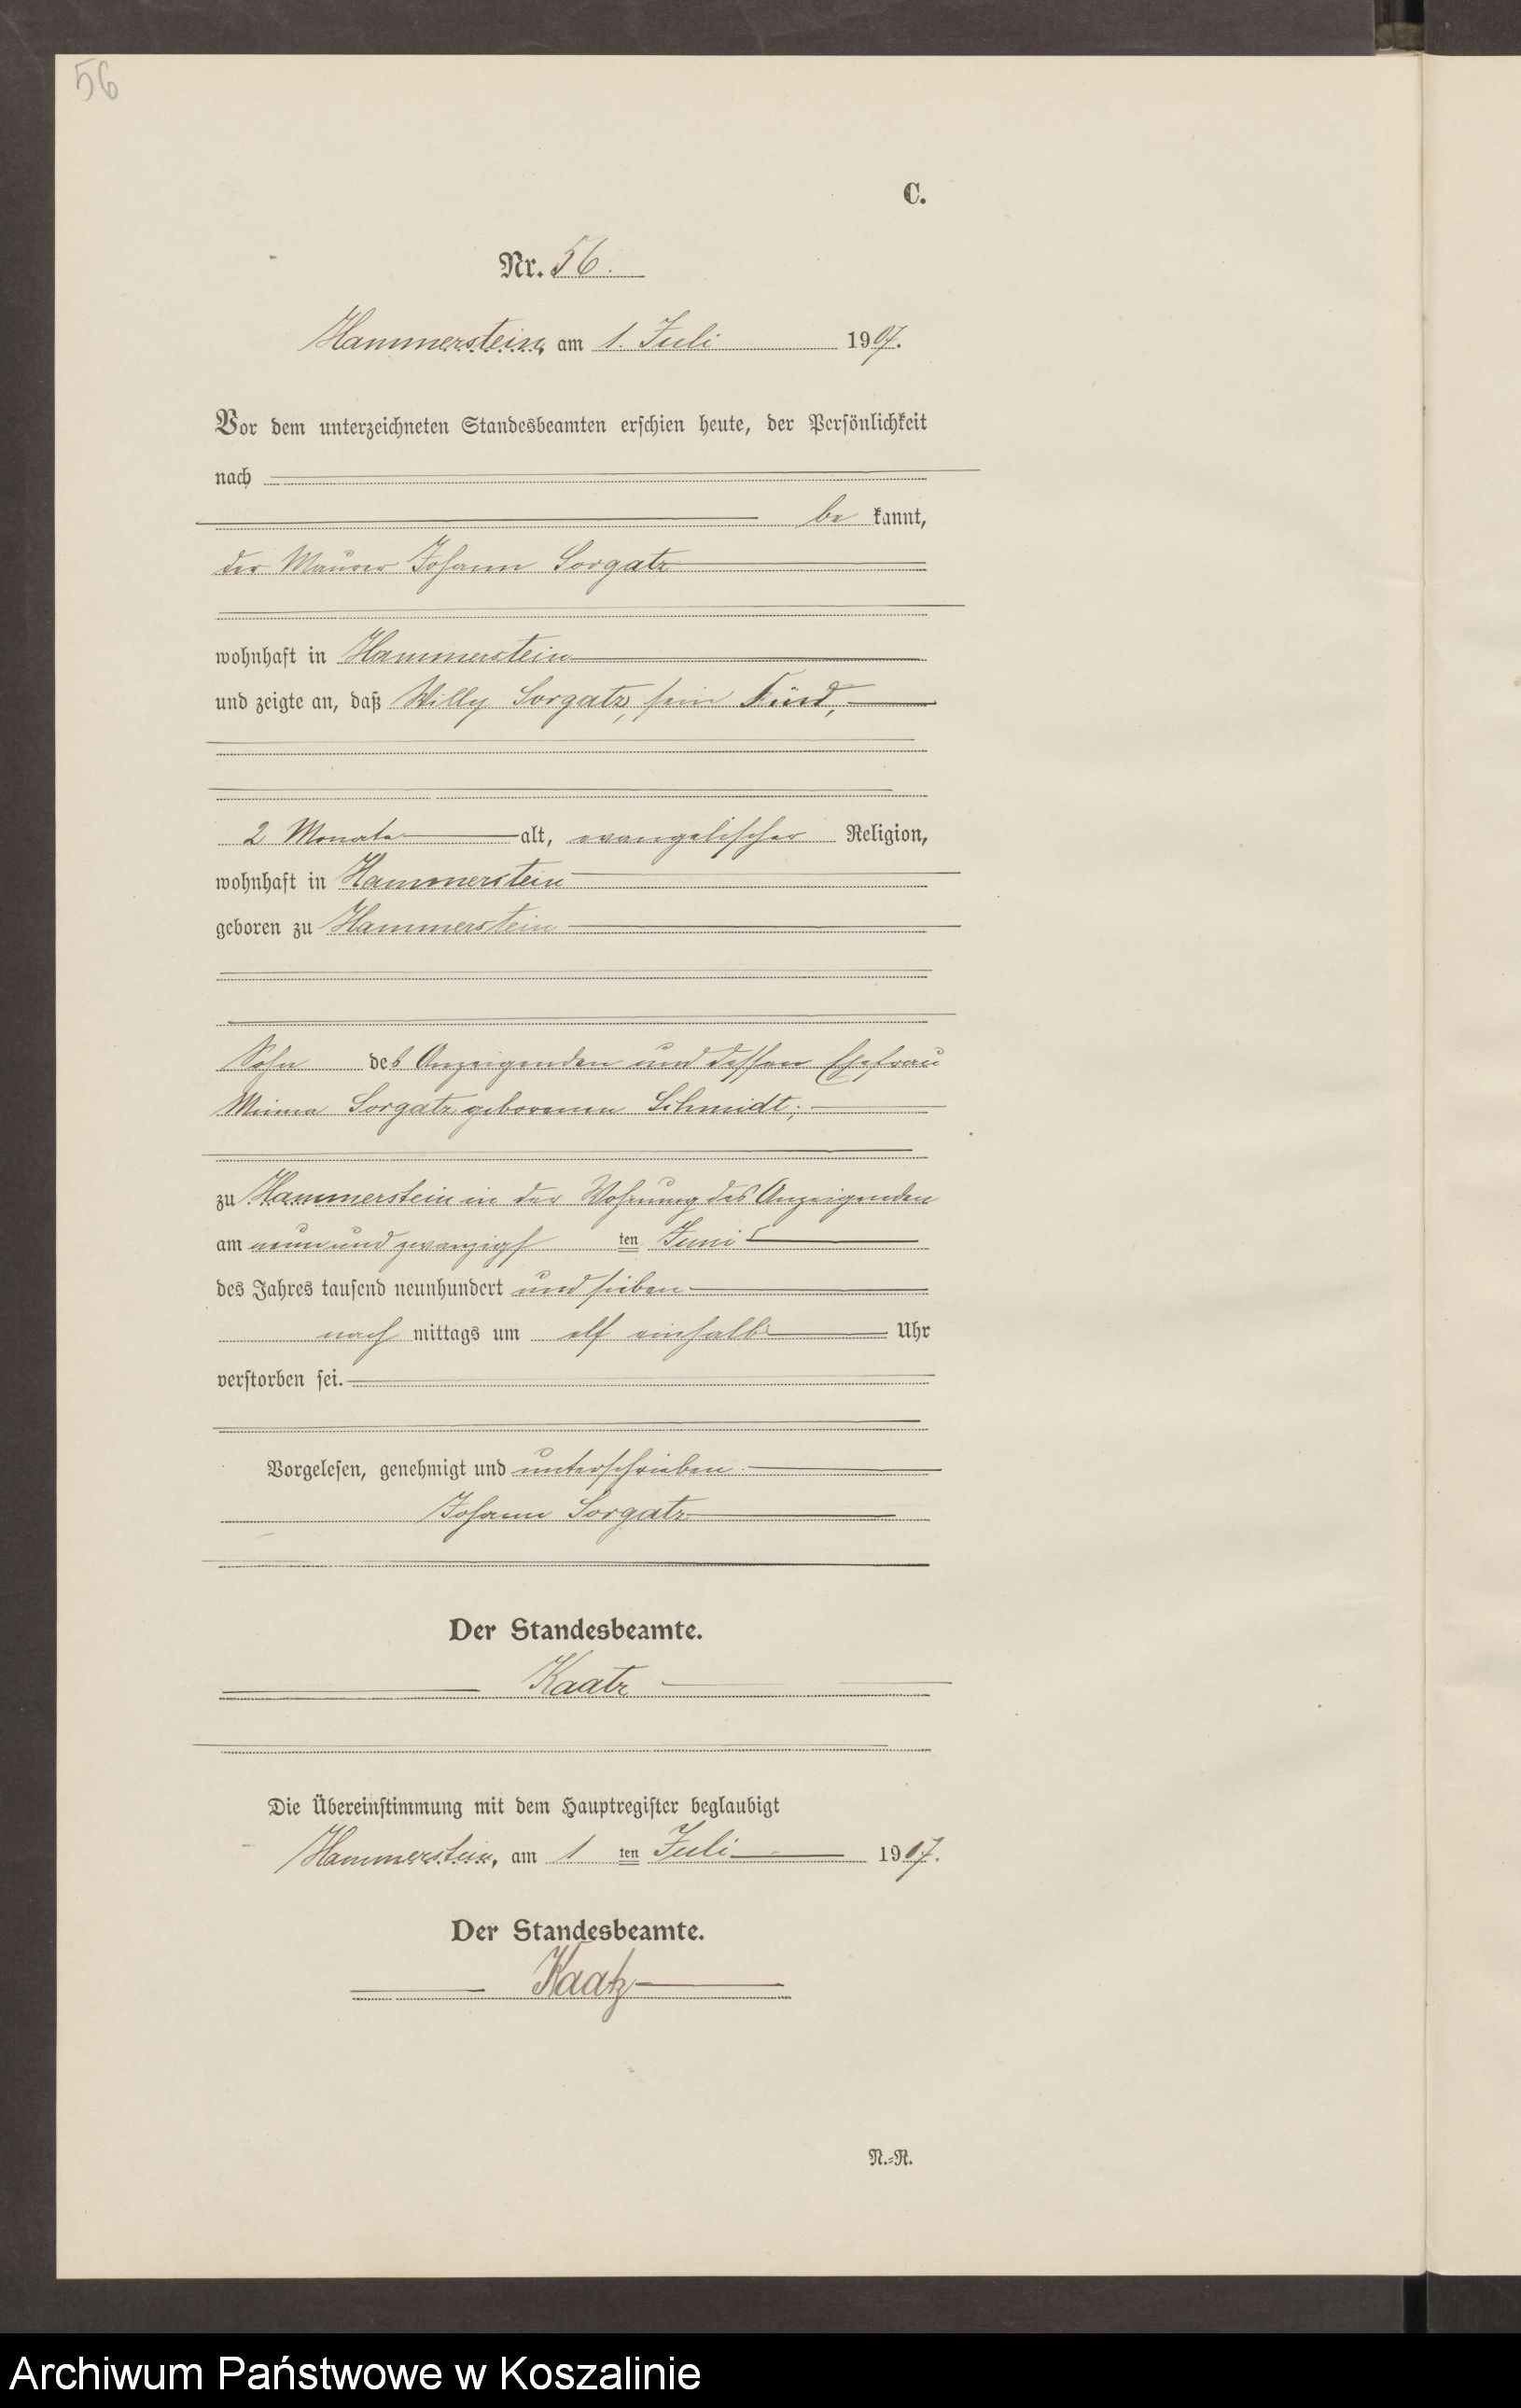 56
C.
Nr. 56.
Hammerstein, am 1. Juli 1907.
Vor dem unterzeichneten Standesbeamten erschien heute, der Persönlichkeit
nach
be kannt,
der Maurer Johann Sorgatz
wohnhaft in Hammerstein
und zeigte an, daß Willy Sorgatz, sein Kind,
2 Monate alt, evangelischer Religion,
wohnhaft in Hammerstein
geboren zu Hammerstein
Sohn des Anzeigenden und dessen Ehefrau
Sorgatz geborenen Schmidt,
zu Hammerstein in der Wohnung des Anzeigenden
am neun und zwanzigs ten Juni
des Jahres tausend neunhundert und sieben
nach mittags um elf einhalb Uhr
verstorben sei.
Vorgelesen, genehmigt und unterschrieben.
Johann Sorgatz
Der Standesbeamte.
Kaatz
Die Übereinstimmung mit dem Hauptregister beglaubigt
Hammerstein, am 1 ten Juli 1907.
Der Standesbeamte.
Kaatz
N.=R.
Archiwum Państwowe w Koszalinie